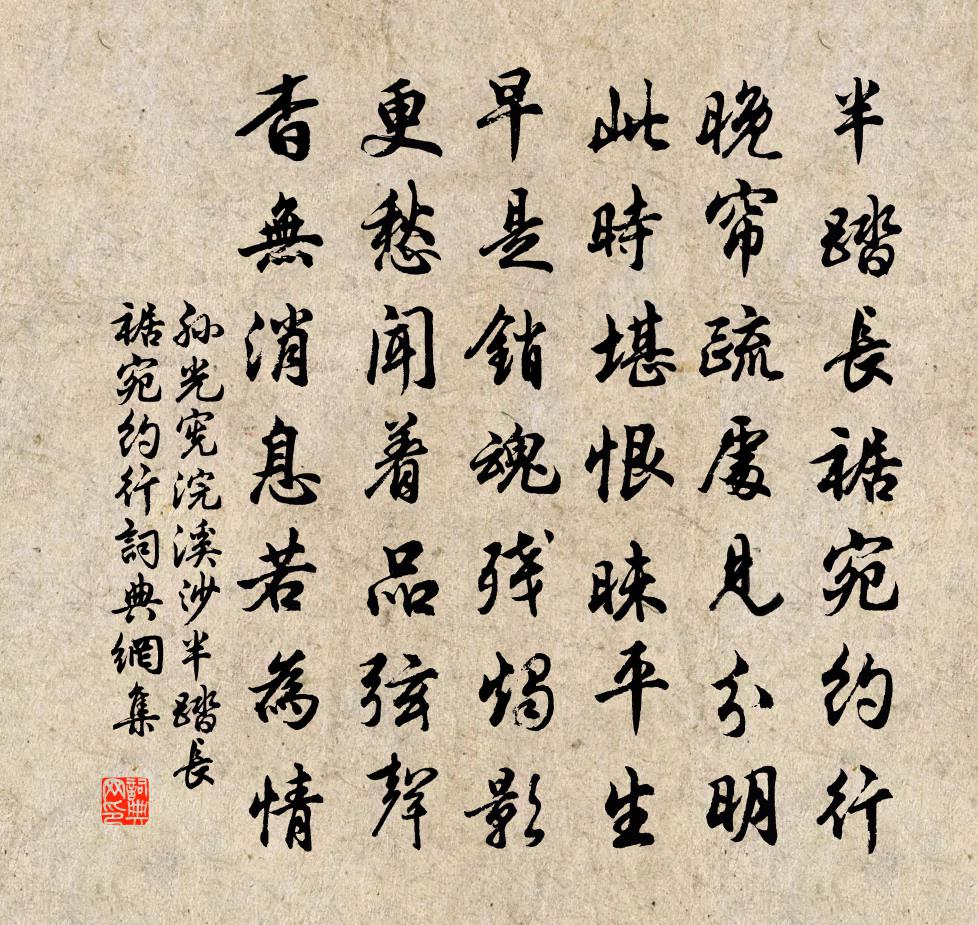 半踏長裾宛約行
晚帘疏處見分明
此時堪恨昧平生
早是銷魂残燭影
更愁聞着品弦聲
杳無消息若為情
孙光宪浣溪沙半踏長
裾宛約行詞典網集
詞典网印